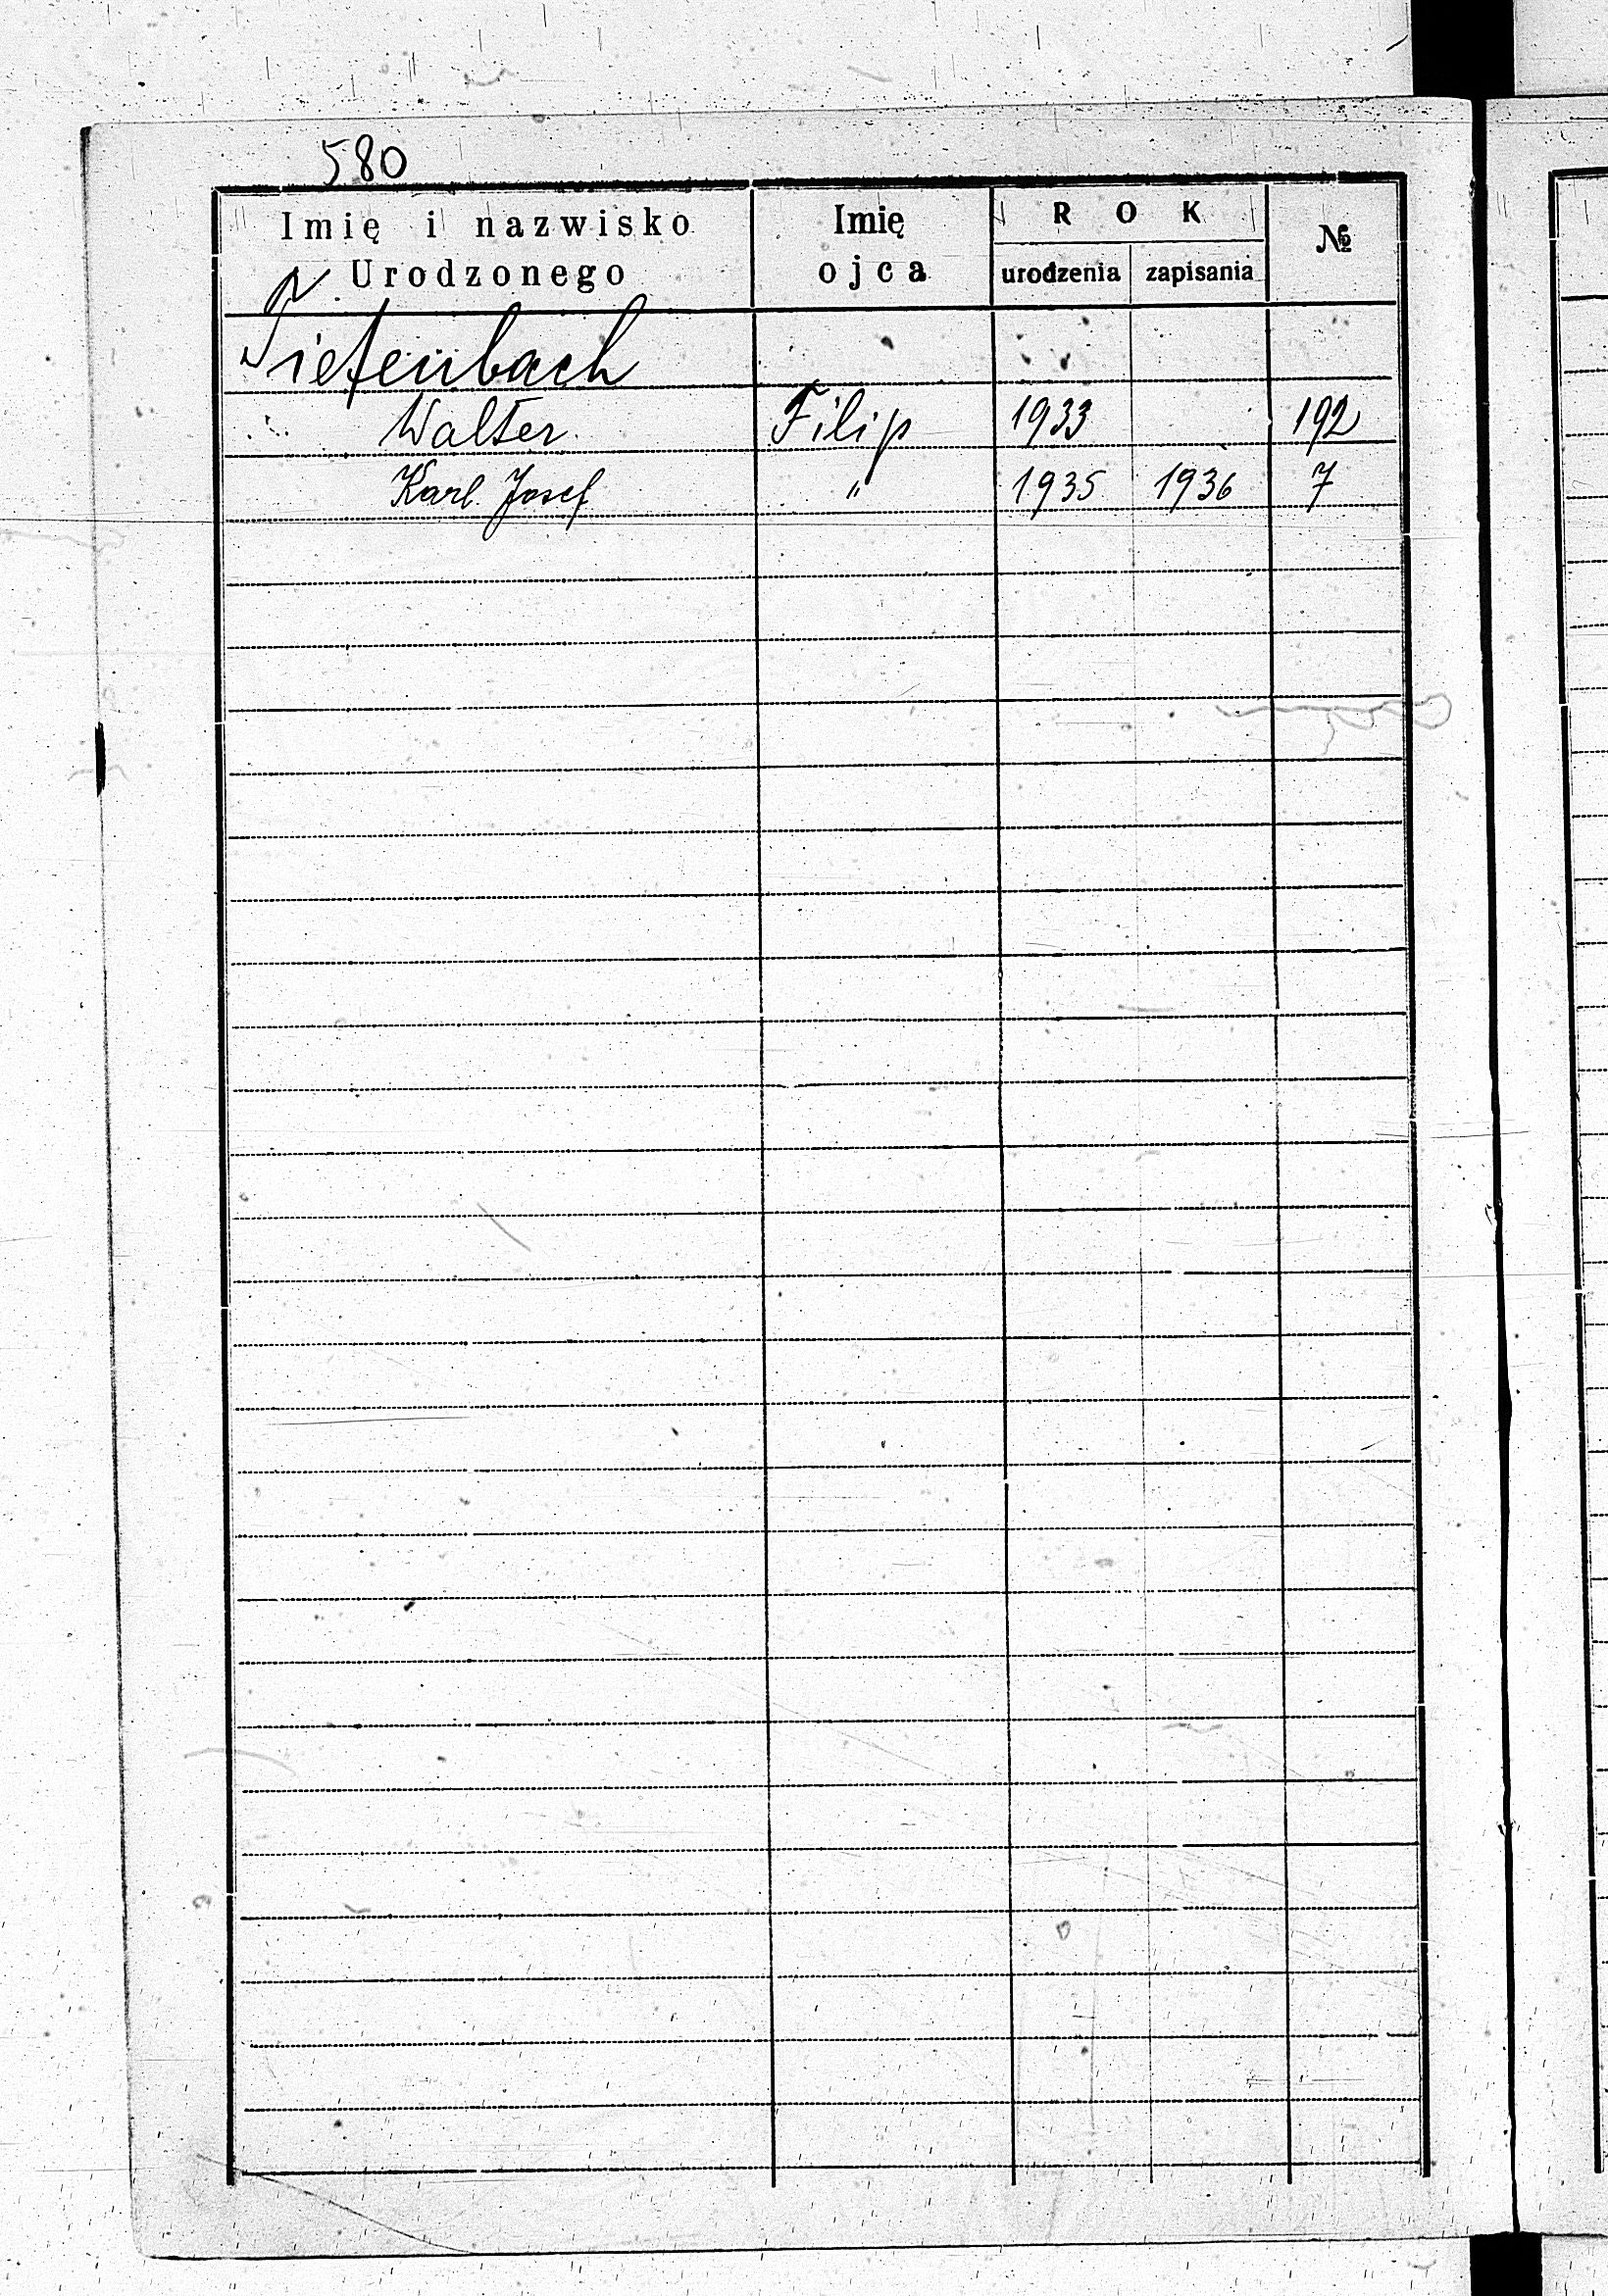 580
Imię i nazwisko Urodzonego Imię ojca ROK urodzenia zapisania №
Tiefenbach
Walter Filip 1933 192
Karl Josef " 1935 1936 7